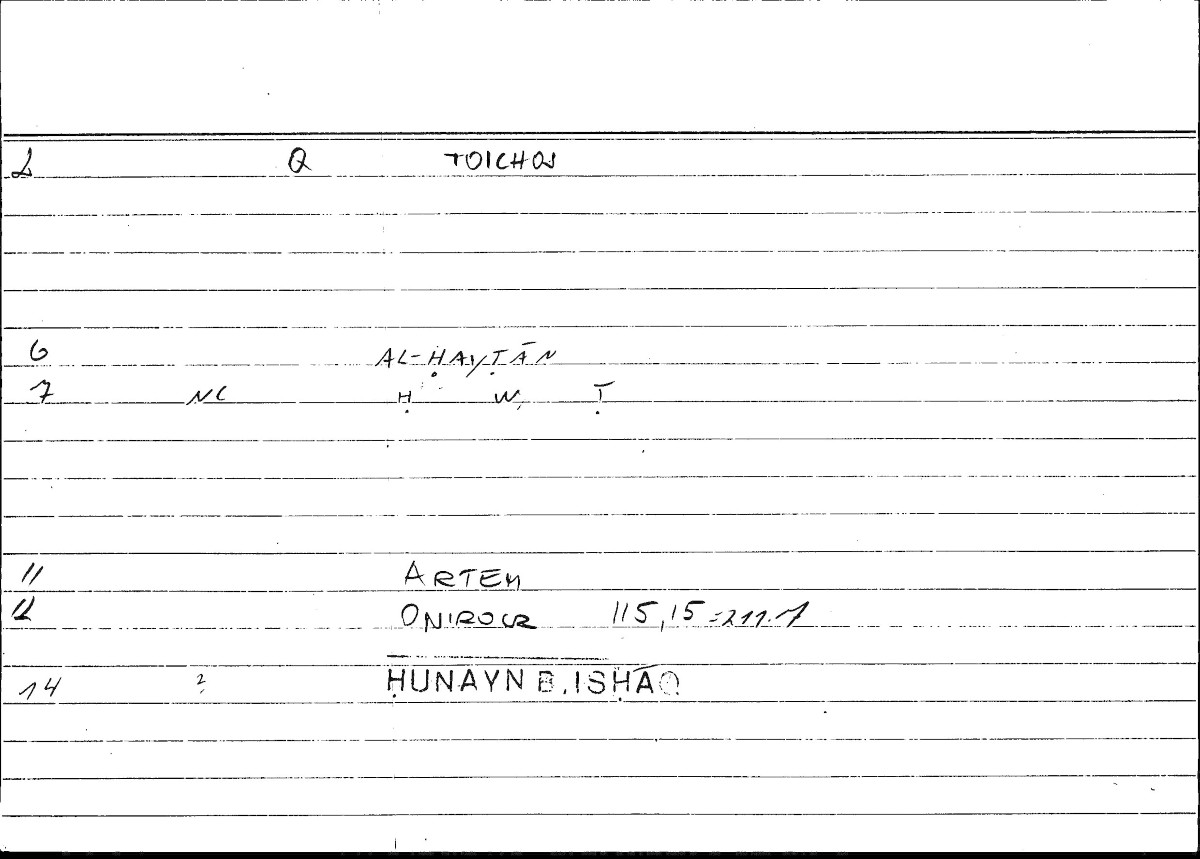 2 Q TOICHOS
6 AL-ḤAYṬĀN
7 NC Ḥ W Ṭ
11 ARTEM
12 ONIROCR 115,15 = 211.7
14 2 ḤUNAYN B. ISḤĀQ